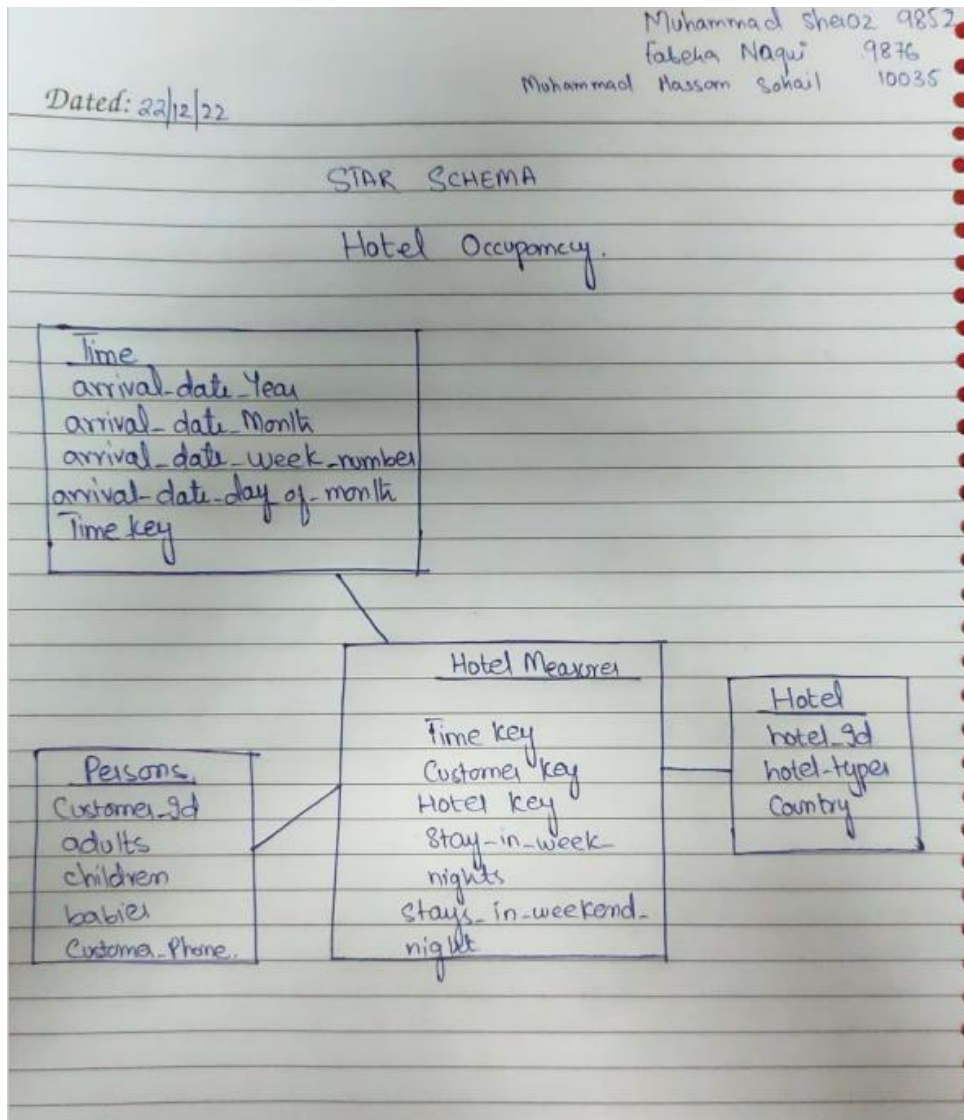 Muhammad Sheroz 9852
Fabeha Naqvi 9876
Muhammad Hassam Sohail 10035
Dated: 22/12/22
STAR SCHEMA
Hotel Occupancy.
Time
arrival-date-Year
arrival-date-Month
arrival-date-week-number
arrival-date-day of-month
Time key
Hotel Measures
Time key
Customer key
Hotel key
Stay-in-week-
nights
Stays-in-weekend-
night
Hotel
hotel-Id
hotel-types
Country
Persons
Customer-Id
adults
children
babies
Customer-Phone.